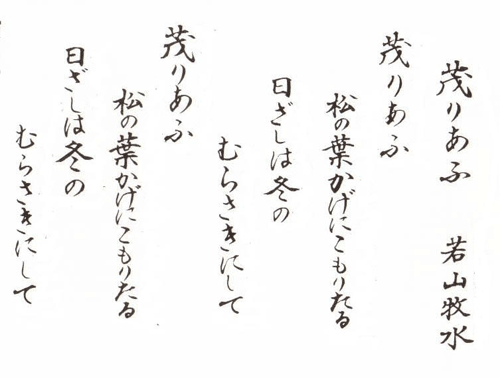 茂りあふ　若山牧水
茂りあふ
松の葉かげにこもりたる
日ざしは冬の
むらさきにして
茂りあふ
松の葉かげにこもりたる
日ざしは冬の
むらさきにして